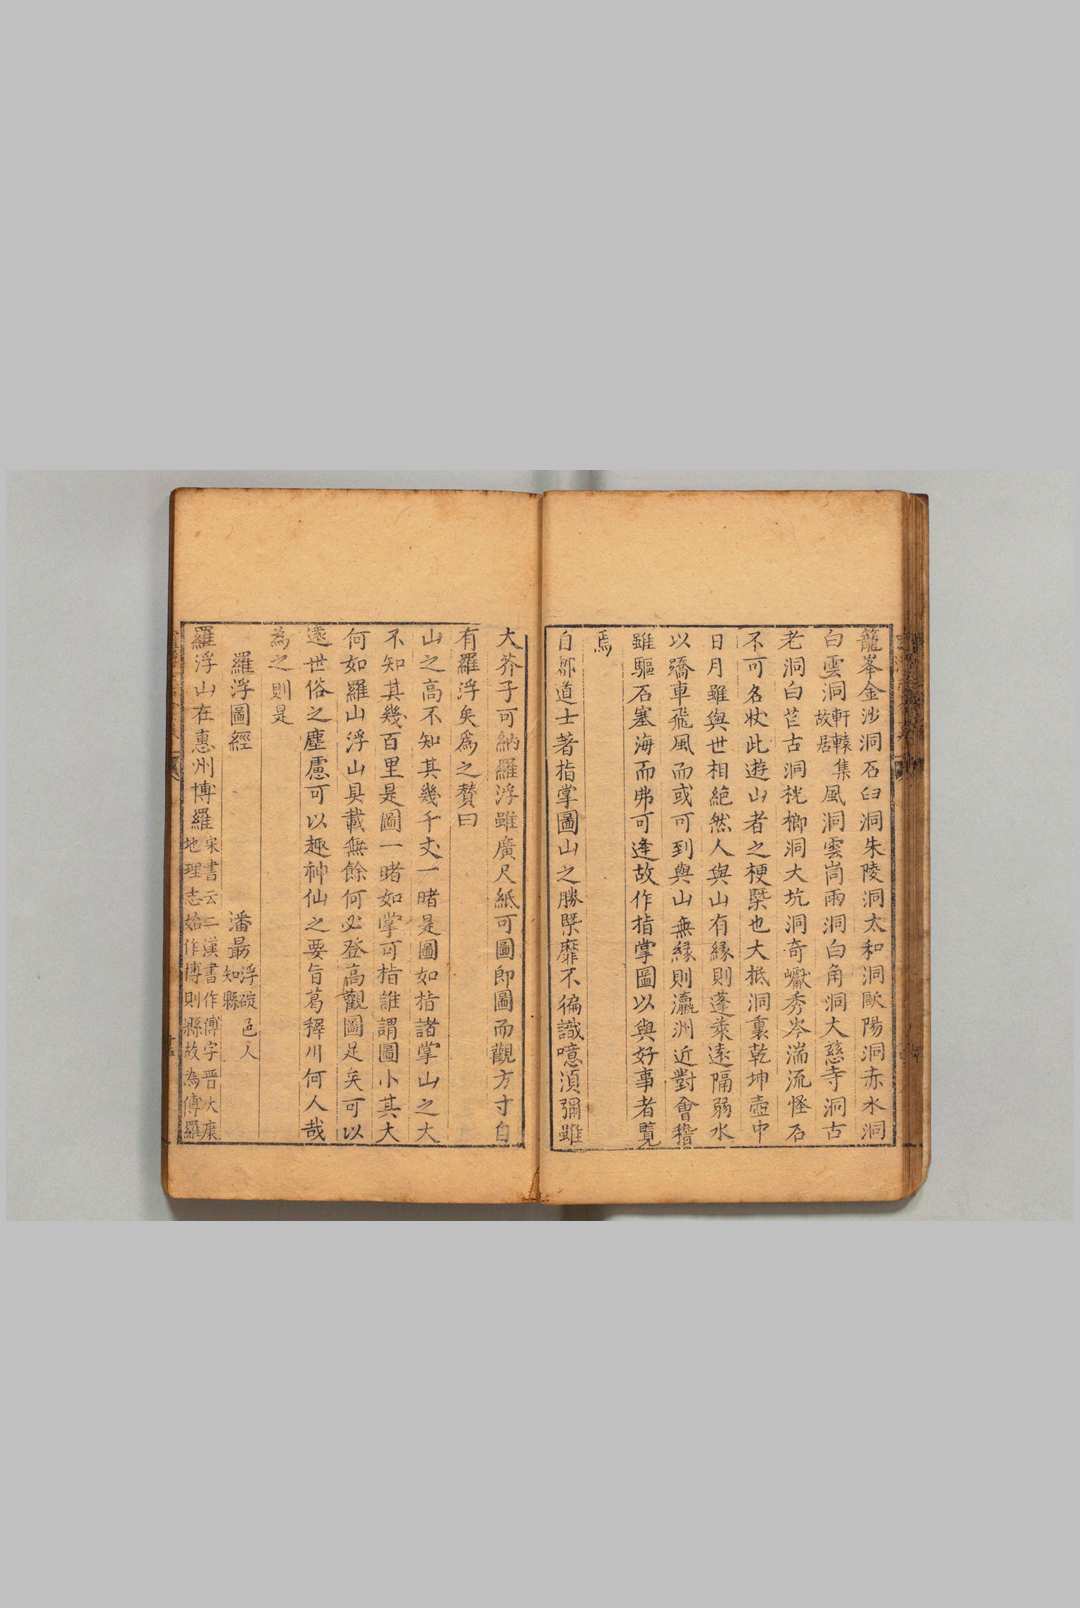 籠峯金沙洞石臼洞朱陵洞太和洞歐陽洞赤水洞
白雲洞軒轅集故居風洞雲崗雨洞白角洞大慈寺洞古
老洞白芒古洞桄榔洞大坑洞奇巘秀岑湍流怪石
不可名狀此遊山者之梗槩也大抵洞裏乾坤壺中
日月雖與世相絶然人與山有緣則蓬萊遠隔弱水
以蹻車飛風而或可到與山無緣則瀛洲近對會稽
雖驅石塞海而弗可逢故作指掌圖以與好事者覽
焉
自鄒道士著指掌圖山之勝槩靡不徧識噫湏彌雖
大芥子可納羅浮雖廣尺紙可圖即圖而觀方寸自
有羅浮矣爲之贊曰
山之高不知其幾千丈一睹是圖如指諸掌山之大
不知其幾百里是圖一睹如掌可指誰謂圖小其大
何如羅山浮山具載無餘何必登高觀圖足矣可以
遠世俗之塵慮可以趣神仙之要旨葛稺川何人哉
為之則是
羅浮圖經 潘最浮碇邑人知縣
羅浮山在惠州博羅宋書云二漢書作傅字晋大康地理志始作博則縣故為傅羅